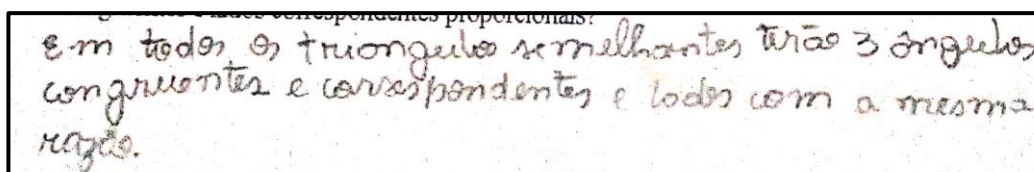 correspondentes proporcionais?
Em todos os triongulos semelhantes terão 3 ângulos
congruentes e correspondentes e lados com a mesma
razão.